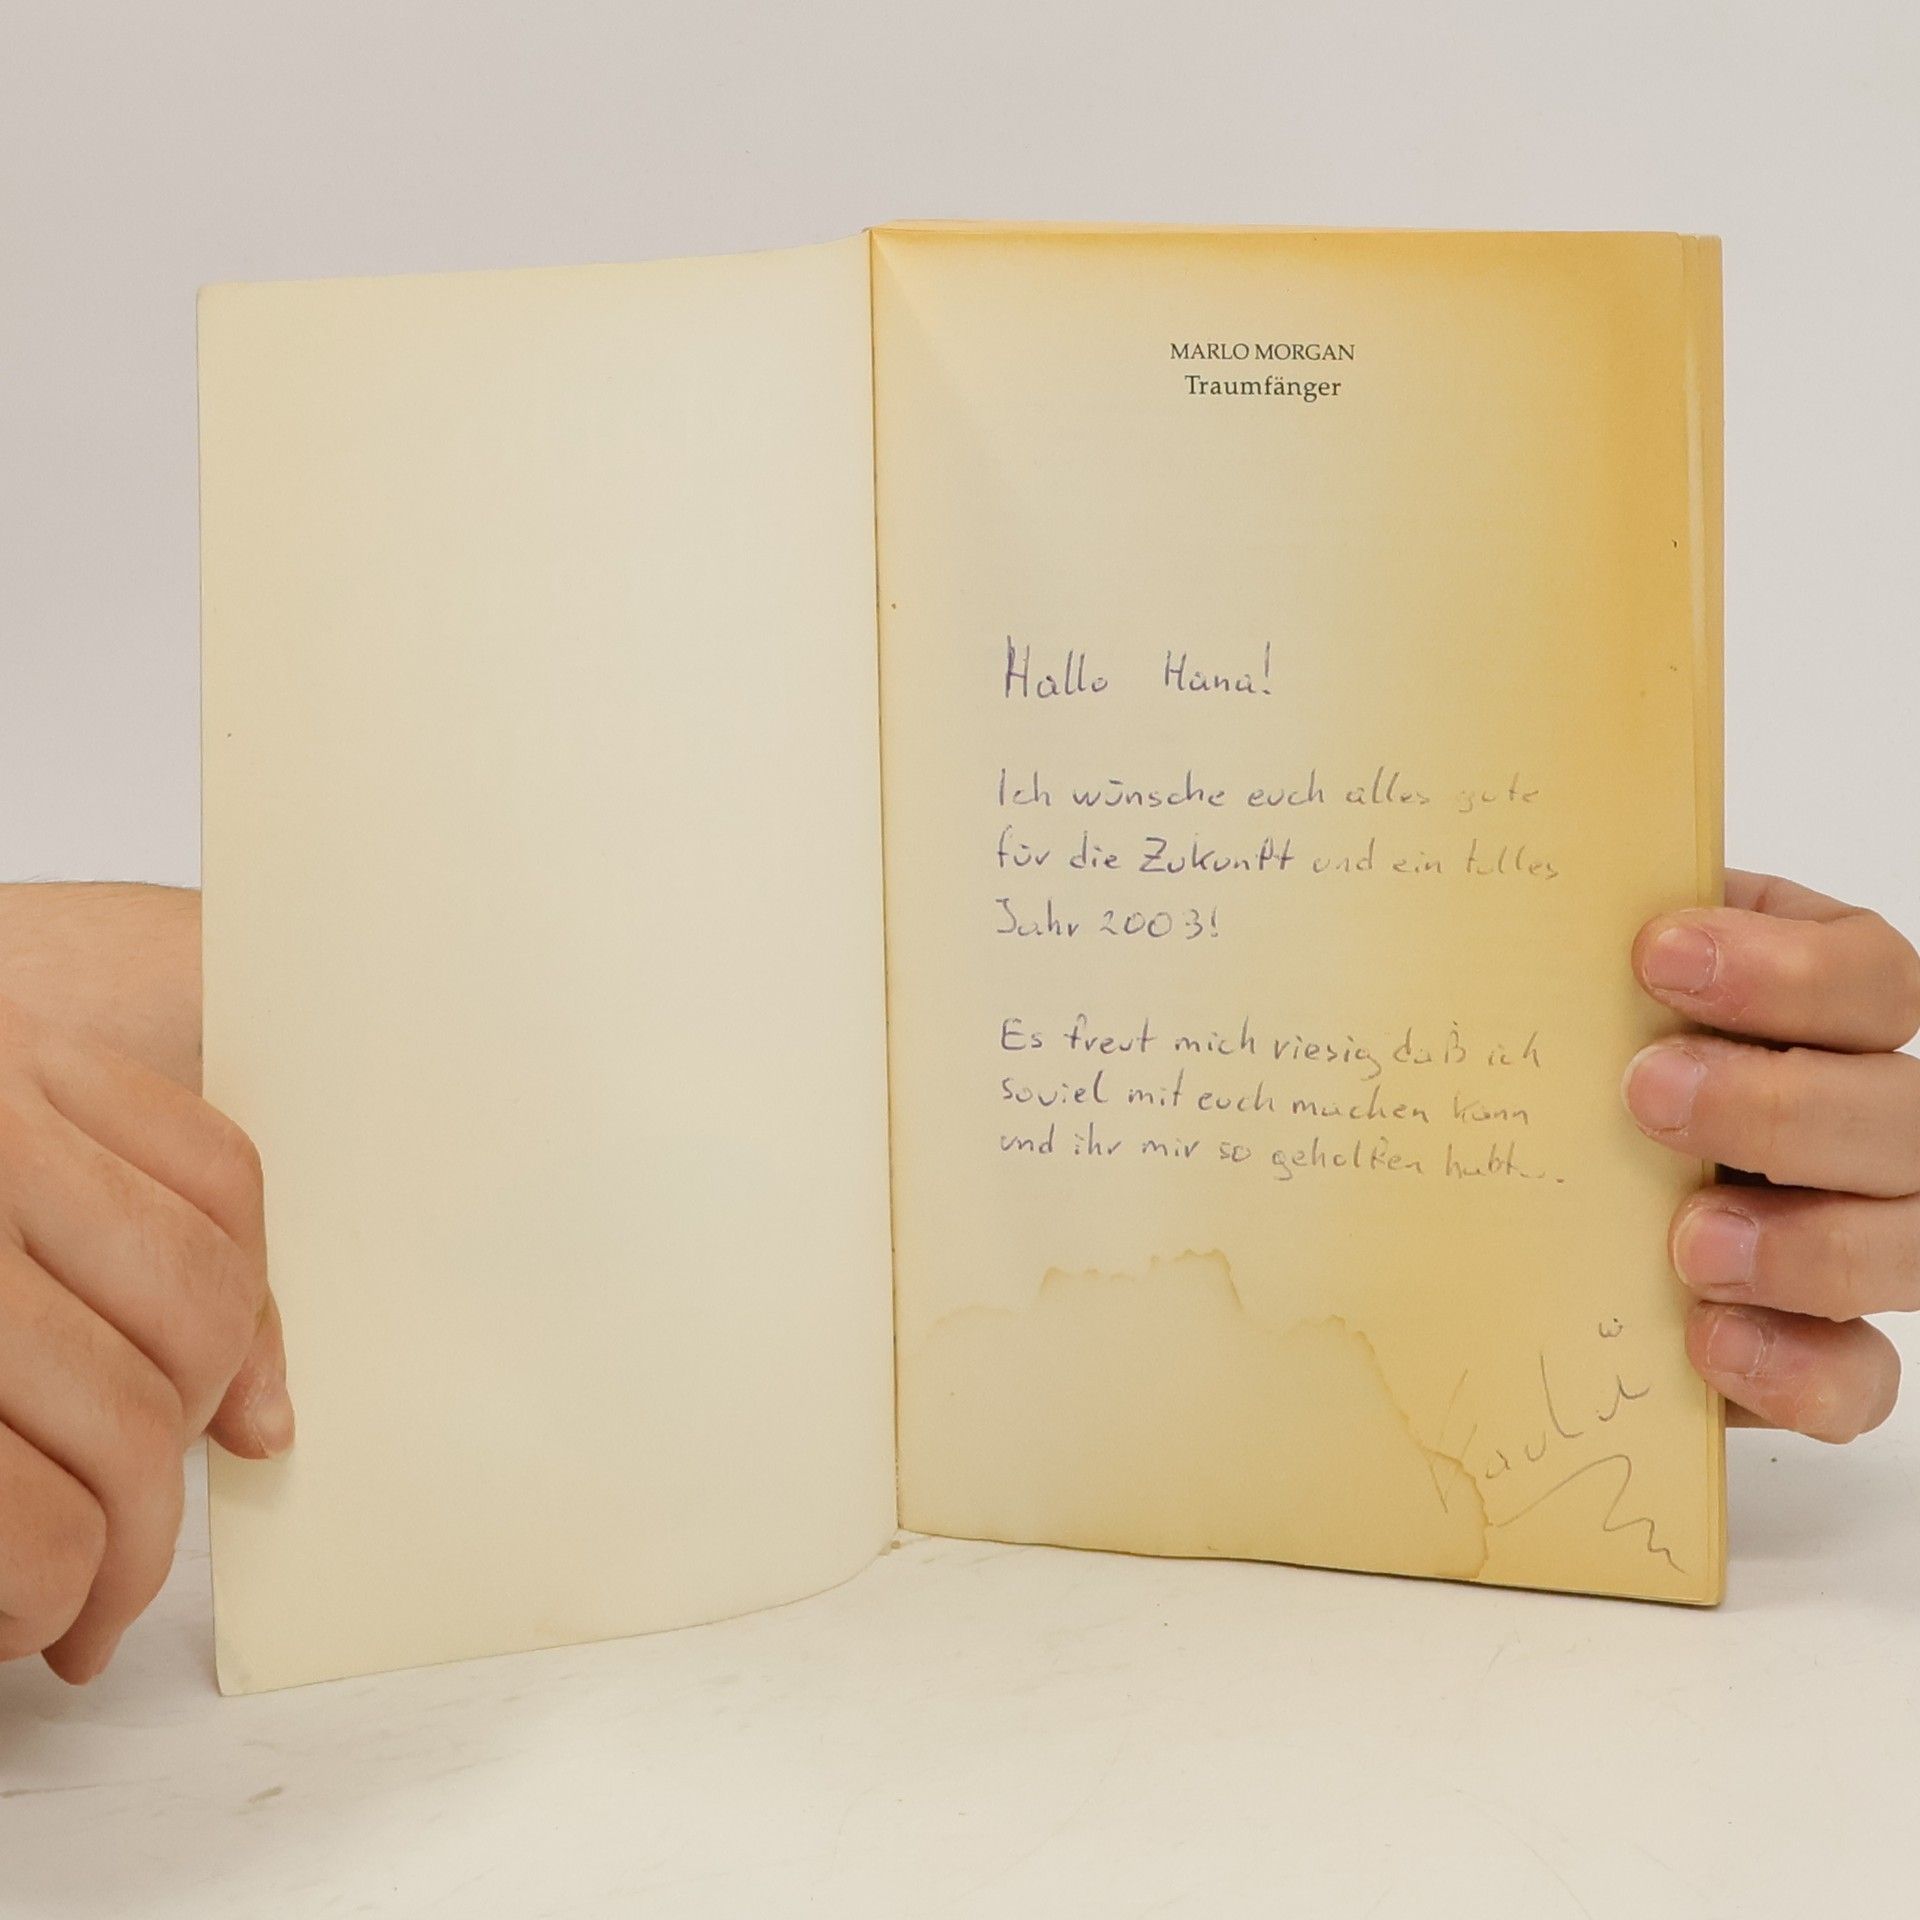 MARLO MORGAN
Traumfänger
Hallo Hana!
Ich wünsche euch alles gute
für die Zukunft und ein tolles
Jahr 2003!
Es freut mich riesig daß ich
soviel mit euch machen kann
und ihr mir so geholfen habt...